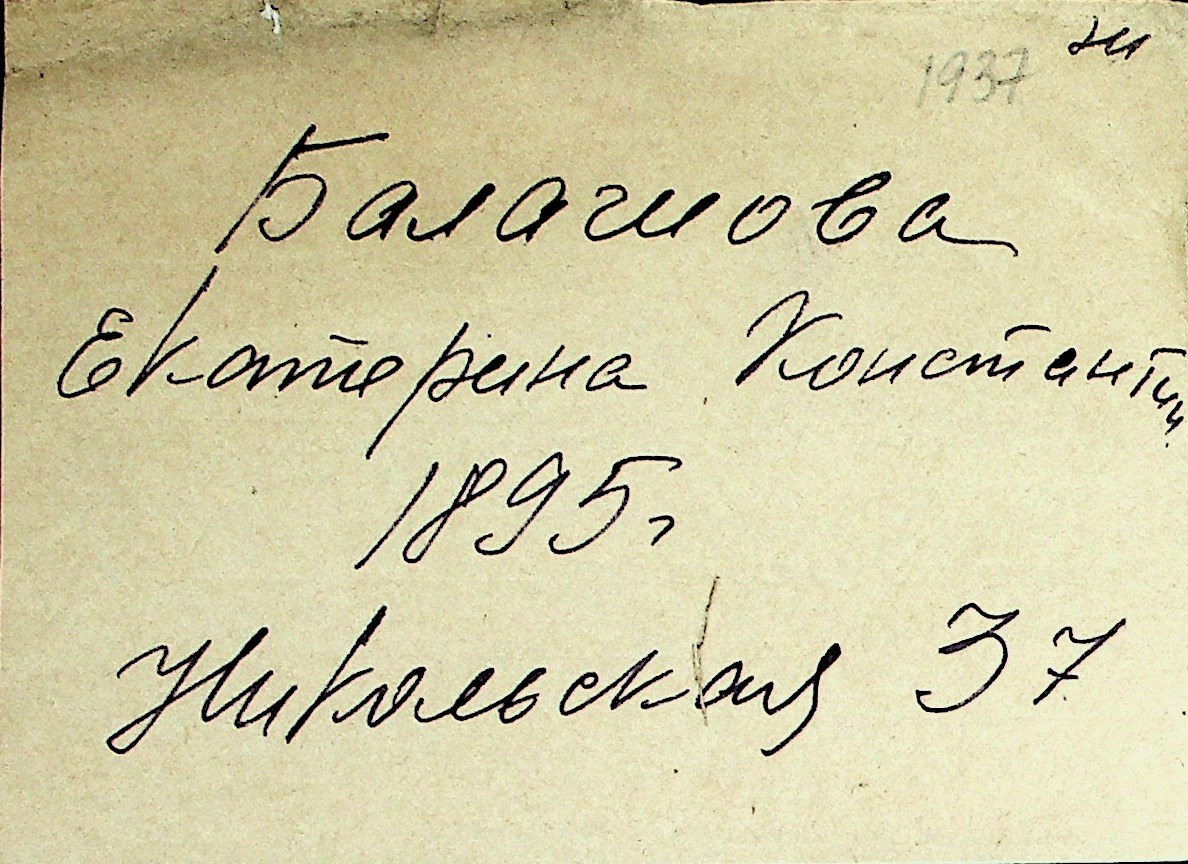 1937
Балашова
Екатерина Константин
1895г
Никольская 37